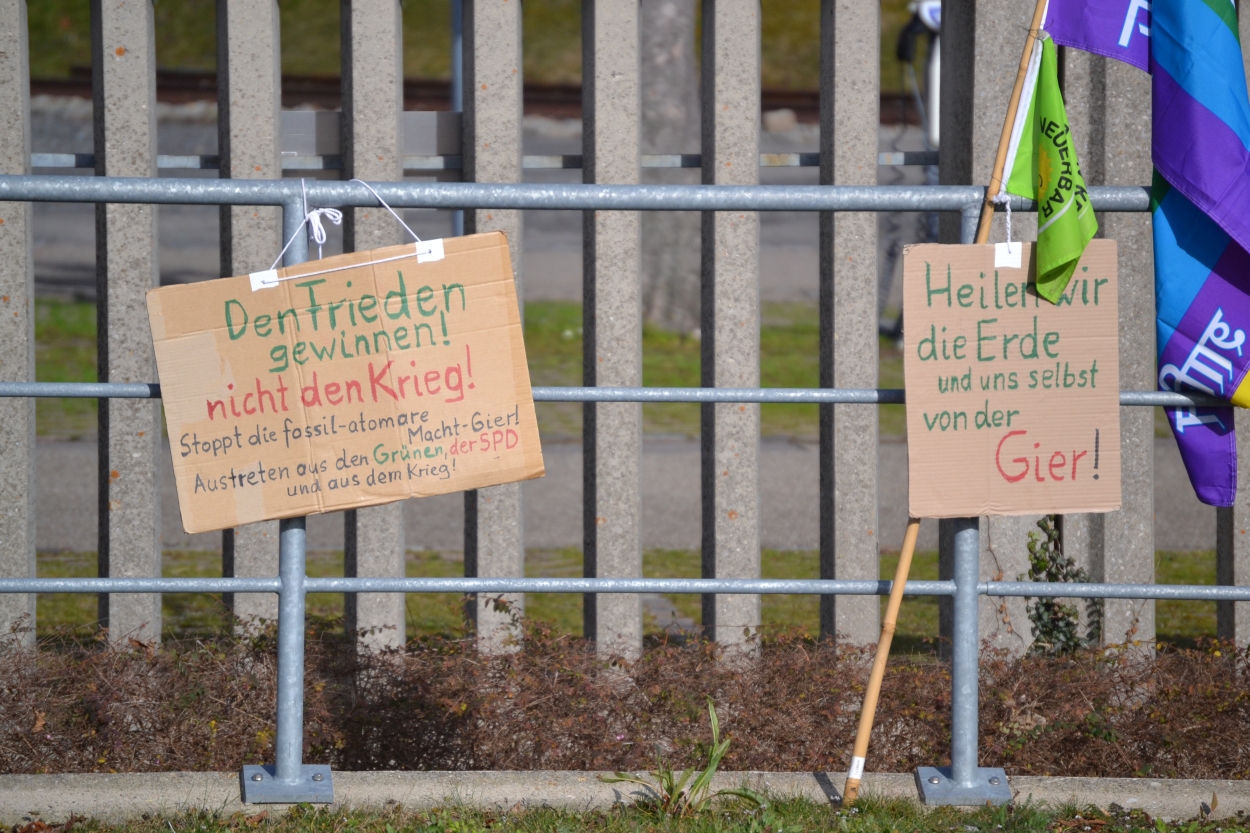 Den Frieden
gewinnen!
nicht den Krieg!
Stoppt die fossil-atomare
Macht-Gier!
Austreten aus den Grünen, der SPD
und aus dem Krieg!
Heilen wir
die Erde
und uns selbst
von der
Gier!
NEUERBAR